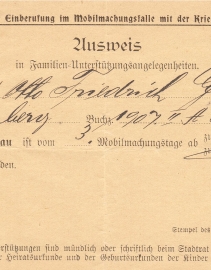 Einberufung im Mobilmachungsfalle mit der Krie
Ausweis
in Familien-Unterstützungsangelegenheiten.
Otto Friedrich
berg Buchz. 1907. II. A
au ist vom 3. Mobilmachungstage ab
den.
Stempel des
rstützungen sind mündlich oder schriftlich beim Stadtrat
er Heiratsurkunde und der Geburtsurkunden der Kinder